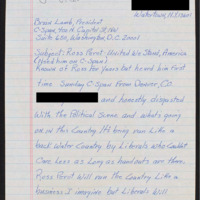 Watertown, N.Y. 13601
Brian Lamb, President
C-Span, 400 N. Capitol St. NW
Suite 650, Washington, D.C. 20001
Subject: Ross Perot; United We Stand, America
(Hold him on C-Span)
Known of Ross for years but heard him first
time Sunday C-Span from Denver, CO.
and honestly disgusted
with the Political Scene and what's going
on in this Country. It's being run like a
back water Country by Liberals who couldn't
care less as long as handouts are there.
Ross Perot will run the Country like a
business I imagine but Liberals will